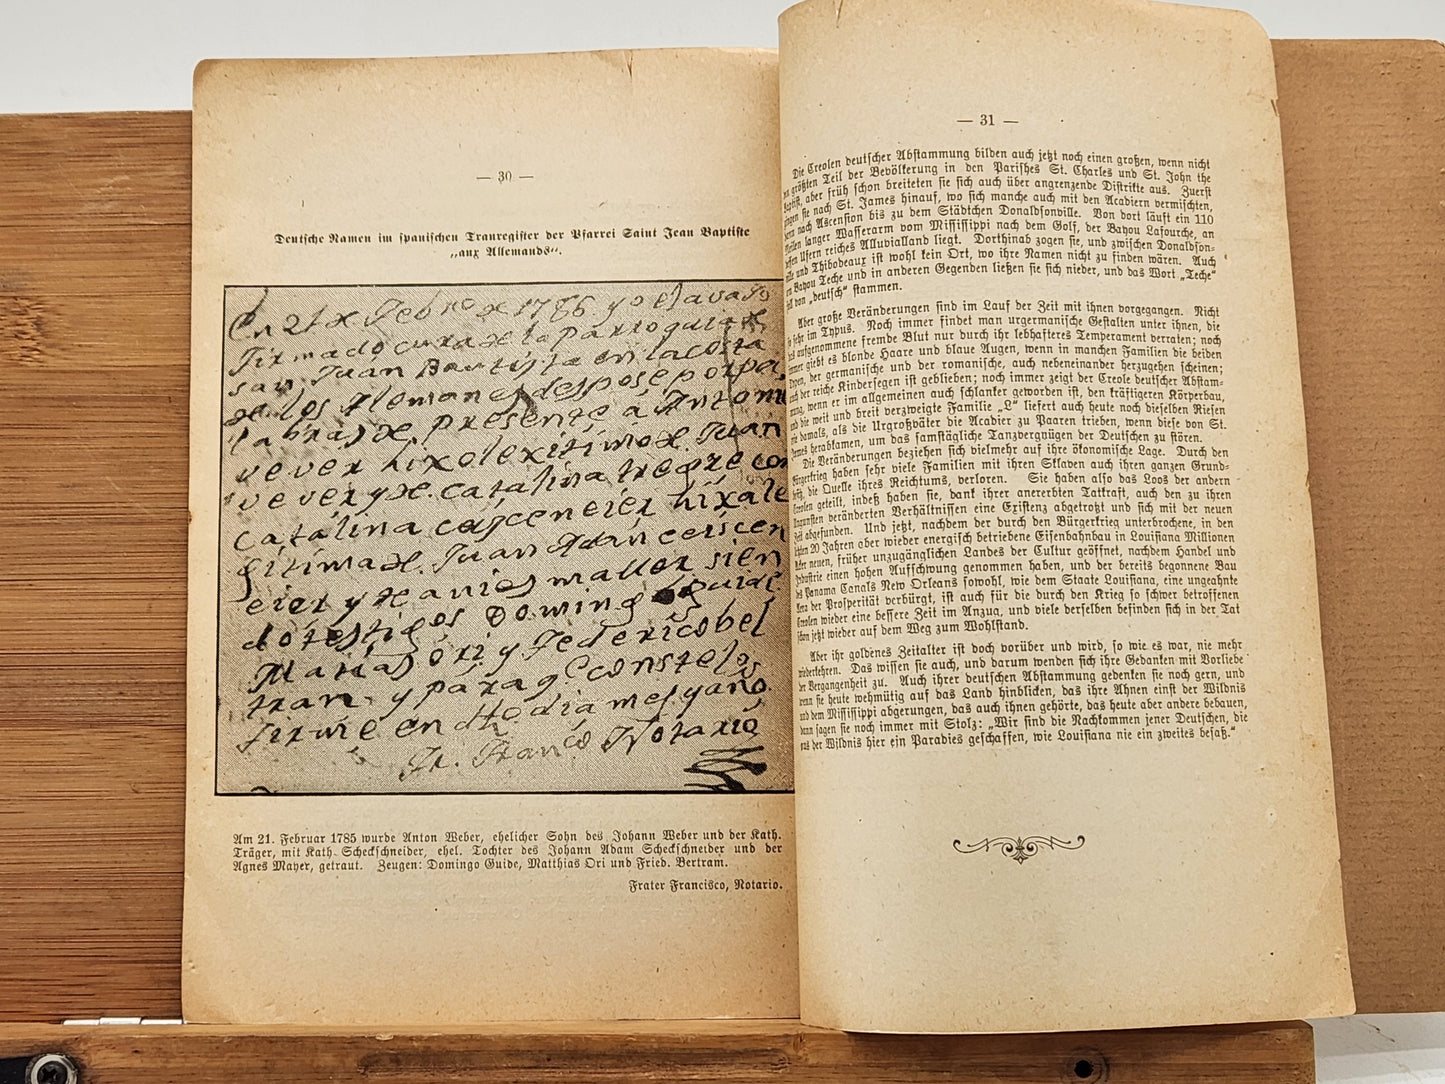 — 30 —
Deutsche Namen im spanischen Trauregister der Pfarrei Saint Jean Baptiste
„aux Allemands“.
En 21 de Febro de 1786 yo el avajo
firmado cura de la parroquia de
san Juan Bautista en la costa
de los Alemanes despose por pa
labras de presente á Antonio
vever hixo lexitimo de Juan
vever y de catalina tregre con
catalina cegceneier hixa le
gitima de Juan Adan cericen
eier y de anies maller sien
do testigos Doming guide
Matias ori y Federico bel
tran y para qe conste lo
firme en dho dia mes y año
Fr. Franco Notario
Am 21. Februar 1785 wurde Anton Weber, ehelicher Sohn des Johann Weber und der Kath.
Träger, mit Kath. Scheckschneider, ehel. Tochter des Johann Adam Scheckschneider und der
Agnes Mayer, getraut. Zeugen: Domingo Guide, Matthias Ori und Fried. Bertram.
Frater Francisco, Notario.
— 31 —
Die Creolen deutscher Abstammung bilden auch jetzt noch einen großen, wenn nicht
größten Teil der Bevölkerung in den Parishes St. Charles und St. John the
Baptist, aber früh schon breiteten sie sich auch über angrenzende Distrikte aus. Zuerst
gingen sie nach St. James hinauf, wo sich manche auch mit den Acadiern vermischten,
nach Ascension bis zu dem Städtchen Donaldsonville. Von dort läuft ein 110
Meilen langer Wasserarm vom Mississippi nach dem Golf, der Bayou Lafourche, an
dessen Ufern reiches Alluvialland liegt. Dorthinab zogen sie, und zwischen Donaldson-
ville und Thibodeaux ist wohl kein Ort, wo ihre Namen nicht zu finden wären. Auch
am Bayou Teche und in anderen Gegenden ließen sie sich nieder, und das Wort „Teche“
soll von „deutsch“ stammen.
Aber große Veränderungen sind im Lauf der Zeit mit ihnen vorgegangen. Nicht
so sehr im Typus. Noch immer findet man urgermanische Gestalten unter ihnen, die
das aufgenommene fremde Blut nur durch ihr lebhafteres Temperament verraten; noch
immer giebt es blonde Haare und blaue Augen, wenn in manchen Familien die beiden
Typen, der germanische und der romanische, auch nebeneinander herzugehen scheinen;
auch der reiche Kindersegen ist geblieben; noch immer zeigt der Creole deutscher Abstam-
mung, wenn er im allgemeinen auch schlanker geworden ist, den kräftigeren Körperbau,
und die weit und breit verzweigte Familie „L“ liefert auch heute noch dieselben Riesen
wie damals, als die Urgroßväter die Acadier zu Paaren trieben, wenn diese von St.
James herabkamen, um das samstägliche Tanzvergnügen der Deutschen zu stören.
Die Veränderungen beziehen sich vielmehr auf ihre ökonomische Lage. Durch den
Bürgerkrieg haben sehr viele Familien mit ihren Sklaven auch ihren ganzen Grund-
besitz, die Quelle ihres Reichtums, verloren. Sie haben also das Loos der andern
Creolen geteilt, indeß haben sie, dank ihrer anererbten Tatkraft, auch den zu ihren
Ungunsten veränderten Verhältnissen eine Existenz abgetrotzt und sich mit der neuen
Zeit abgefunden. Und jetzt, nachdem der durch den Bürgerkrieg unterbrochene, in den
letzten 20 Jahren aber wieder energisch betriebene Eisenbahnbau in Louisiana Millionen
Acker neuen, früher unzugänglichen Landes der Cultur geöffnet, nachdem Handel und
Industrie einen hohen Aufschwung genommen haben, und der bereits begonnene Bau
des Panama Canals New Orleans sowohl, wie dem Staate Louisiana, eine ungeahnte
Aera der Prosperität verbürgt, ist auch für die durch den Krieg so schwer betroffenen
Creolen wieder eine bessere Zeit im Anzug, und viele derselben befinden sich in der Tat
schon jetzt wieder auf dem Weg zum Wohlstand.
Aber ihr goldenes Zeitalter ist doch vorüber und wird, so wie es war, nie mehr
wiederkehren. Das wissen sie auch, und darum wenden sich ihre Gedanken mit Vorliebe
der Vergangenheit zu. Auch ihrer deutschen Abstammung gedenken sie noch gern, und
wenn sie heute wehmütig auf das Land hinblicken, das ihre Ahnen einst der Wildnis
und dem Mississippi abgerungen, das auch ihnen gehörte, das heute aber andere bebauen,
dann sagen sie noch immer mit Stolz: „Wir sind die Nachkommen jener Deutschen, die
aus der Wildnis hier ein Paradies geschaffen, wie Louisiana nie ein zweites besaß.“